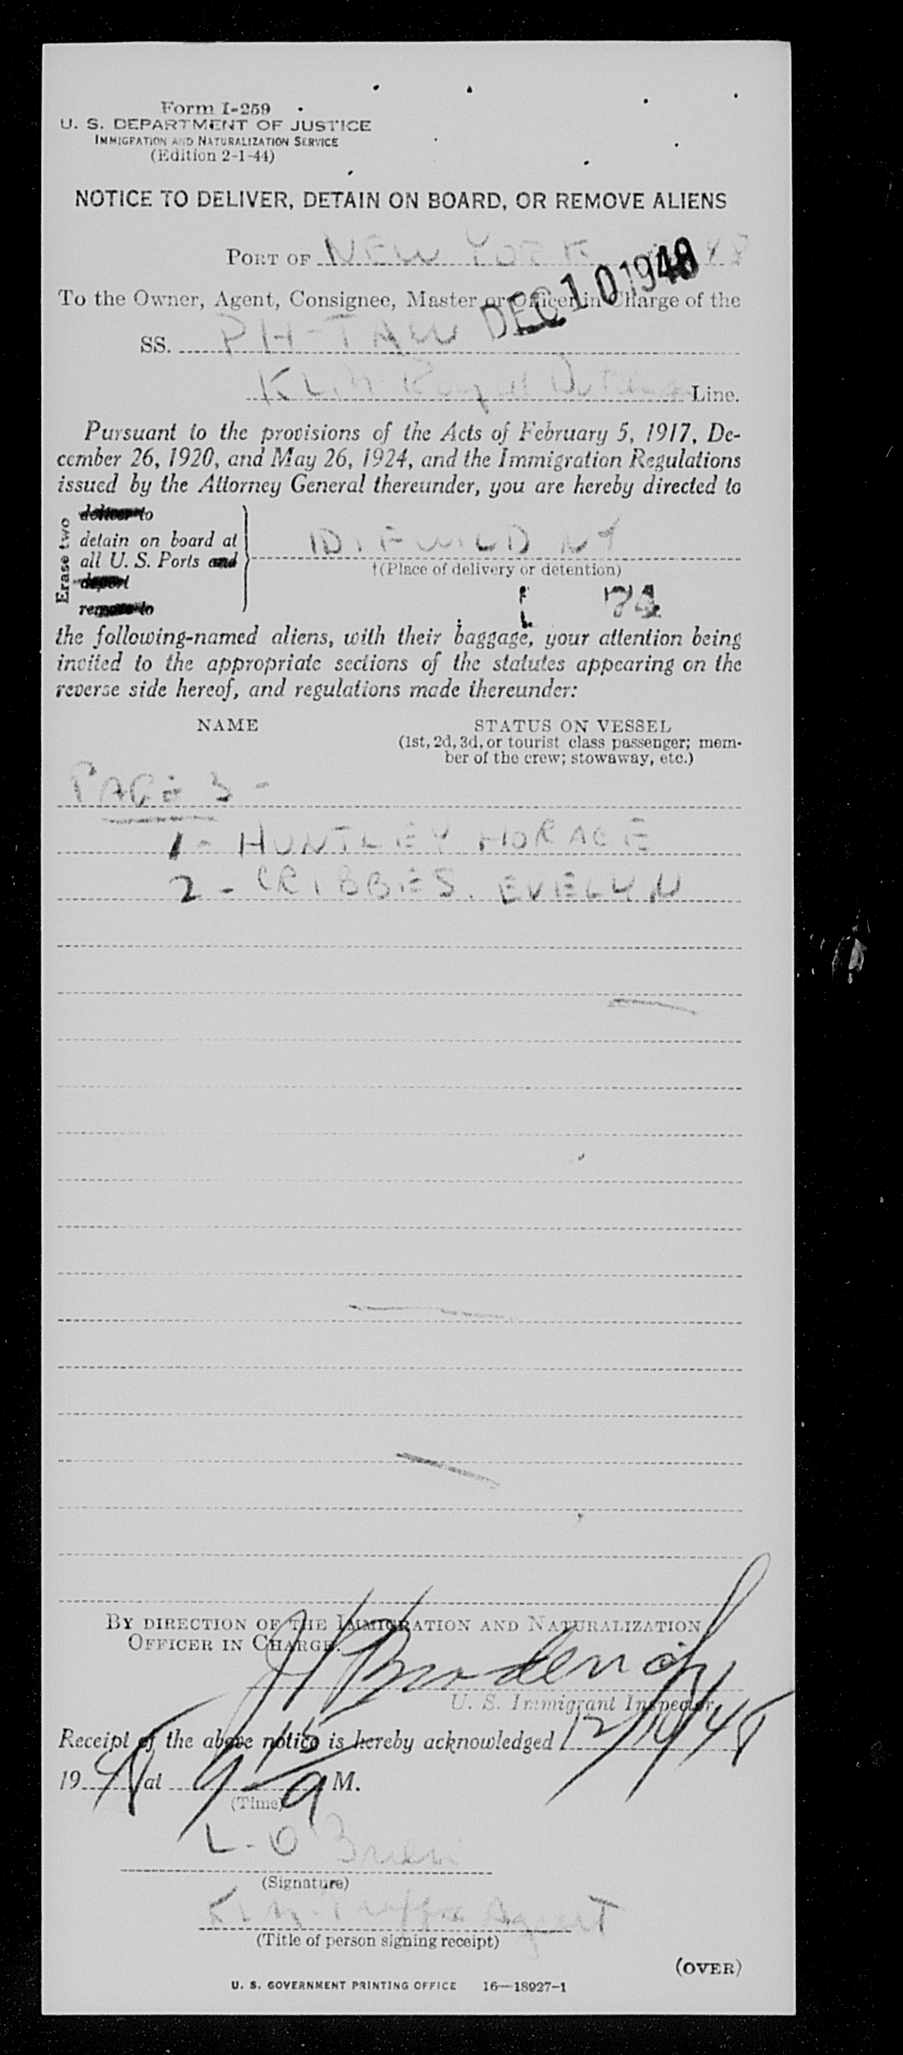 Form I-259
U. S. DEPARTMENT OF JUSTICE
IMMIGRATION AND NATURALIZATION SERVICE
(Edition 2-1-44)
NOTICE TO DELIVER, DETAIN ON BOARD, OR REMOVE ALIENS
PORT OF NEW YORK
DEC 10 1948
To the Owner, Agent, Consignee, Master or Officer in Charge of the
SS. PH-TAW
KLM Royal Line.
Pursuant to the provisions of the Acts of February 5, 1917, De-
cember 26, 1920, and May 26, 1924, and the Immigration Regulations
issued by the Attorney General thereunder, you are hereby directed to
Erase two
deliver to
detain on board at
all U. S. Ports and
deport
remove to
IDLEWILD NY
†(Place of delivery or detention)
74
the following-named aliens, with their baggage, your attention being
invited to the appropriate sections of the statutes appearing on the
reverse side hereof, and regulations made thereunder:
NAME STATUS ON VESSEL
(1st, 2d, 3d, or tourist class passenger; mem-
ber of the crew; stowaway, etc.)
PAGE 3 -
1 - HUNTLEY HORACE
2 - CRIBBES. EVELYN
BY DIRECTION OF THE IMMIGRATION AND NATURALIZATION
OFFICER IN CHARGE.
U. S. Immigrant Inspector.
Receipt of the above notice is hereby acknowledged 12/10/48
19 48 at 9 15 a M.
(Time)
L. O'Brien
(Signature)
KLM. Traffic Agent
(Title of person signing receipt)
(OVER)
U. S. GOVERNMENT PRINTING OFFICE 16—18927-1